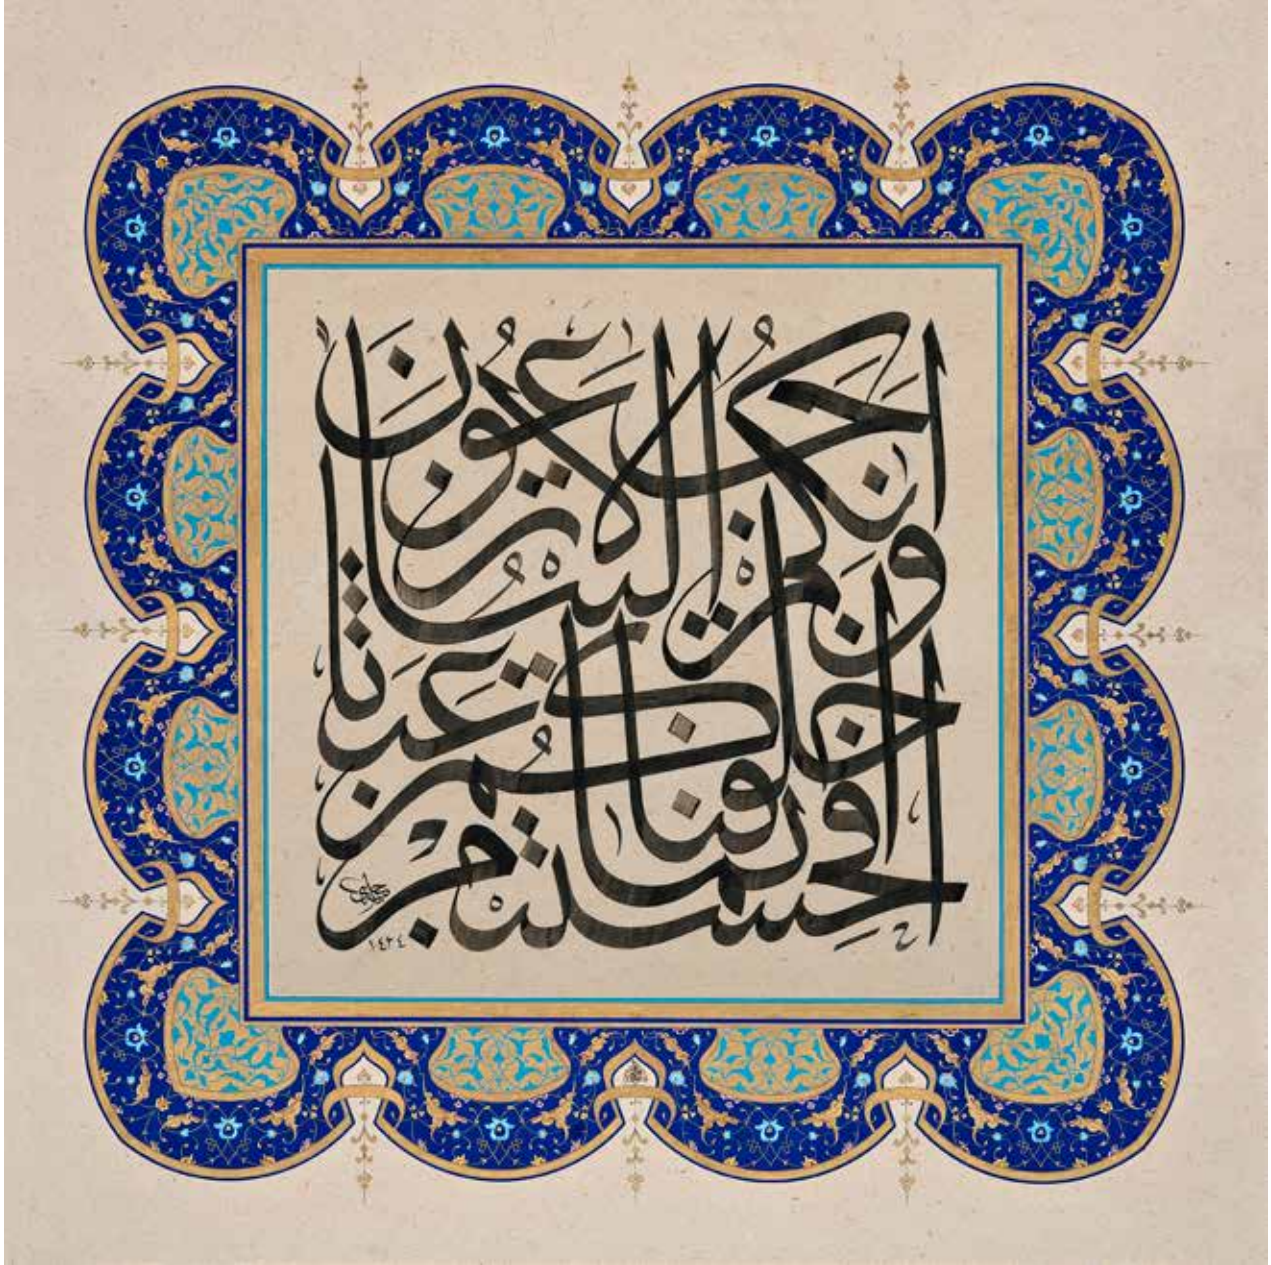 افحسبتم انما
خلقناكم عبثا
وانكم الينا
لا ترجعون